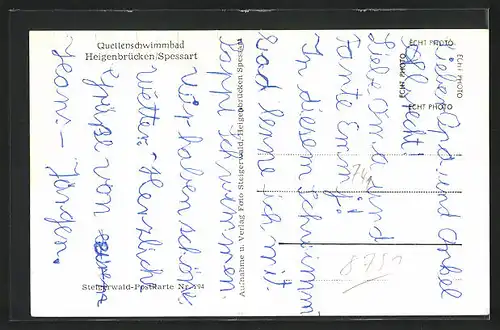 Quellenschwimmbad
Heigenbrücken/Spessart
Lieber Opa und Onkel
Albrecht!
Liebe Oma und
Tante Emmi!
In diesem Schwimm
bad lerne ich mit
Pappi schwimmen.
Wir haben schönes
Wetter. Herzliche
Grüße von
Jürgen.
Aufnahme u. Verlag Foto Steigerwald, Heigenbrücken Spessart
Steigerwald-Postkarte Nr. 294
ECHT PHOTO
ECHT PHOTO
ECHT PHOTO
ECHT PHOTO
8751